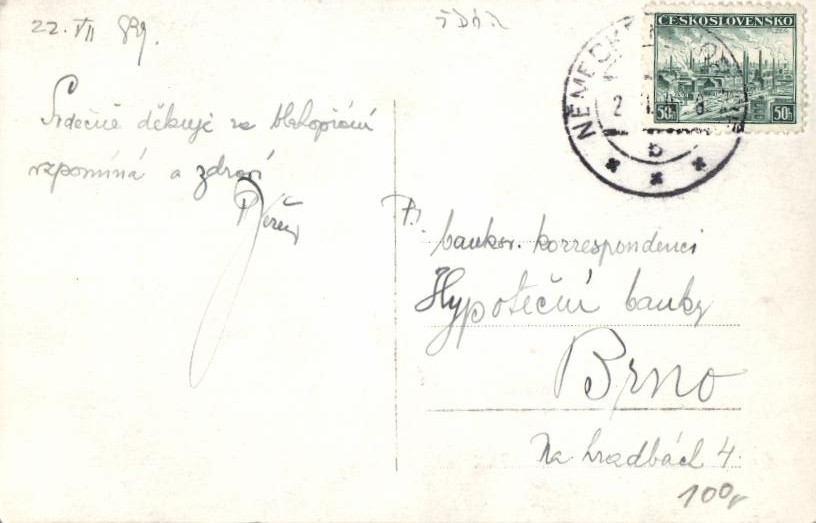 22. VII 939.
ŠDÁR
Srdečně děkuje za blahopřání
vzpomíná a zdraví
ČESKOSLOVENSKO
50h 50h
NĚMECK
b
P.
bankov. korrespondenci
Hypoteční banky
Brno
Na hradbách 4.
100,-